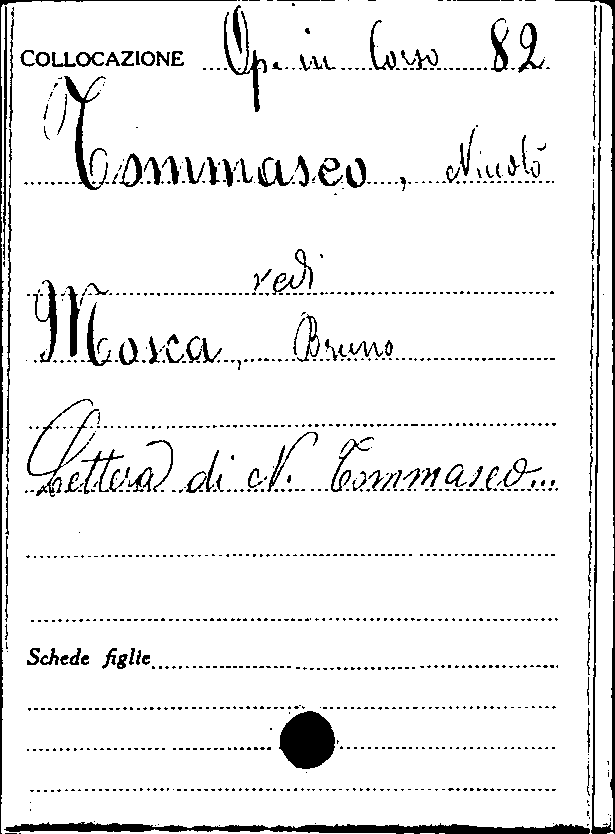 COLLOCAZIONE Op. in Corso 82
Tommaseo, Nicolò
vedi
Mosca, Bruno
Lettera di N. Tommaseo...
Schede figlie